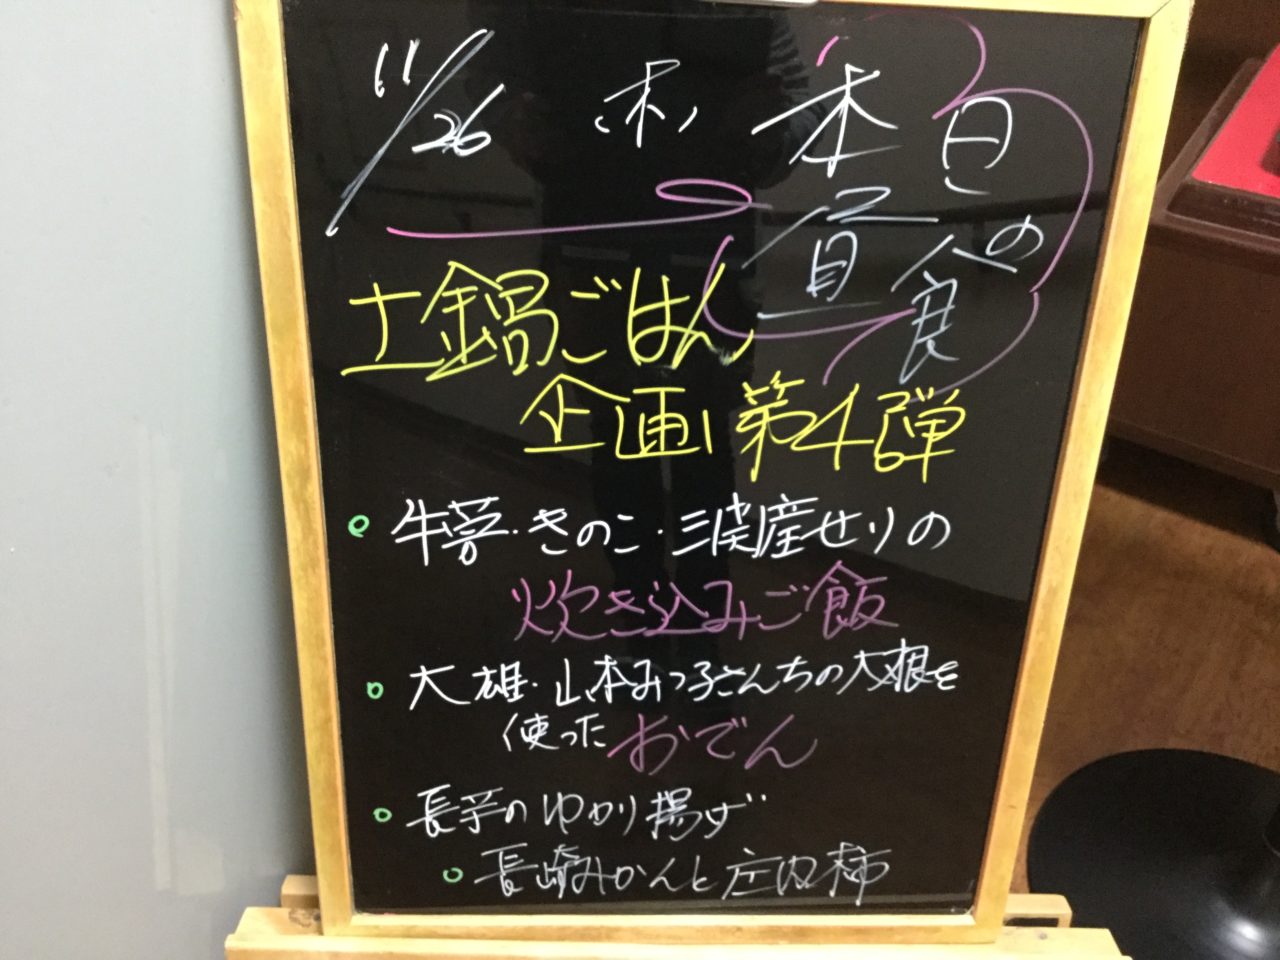 11/26 (木) 本日の
昼食
土鍋ごはん
企画 第4弾
牛蒡・きのこ・三関産せりの
炊き込みご飯
大雄・山本みつ子さんちの大根を
使ったおでん
長芋のゆかり揚げ
長崎みかんと庄内柿